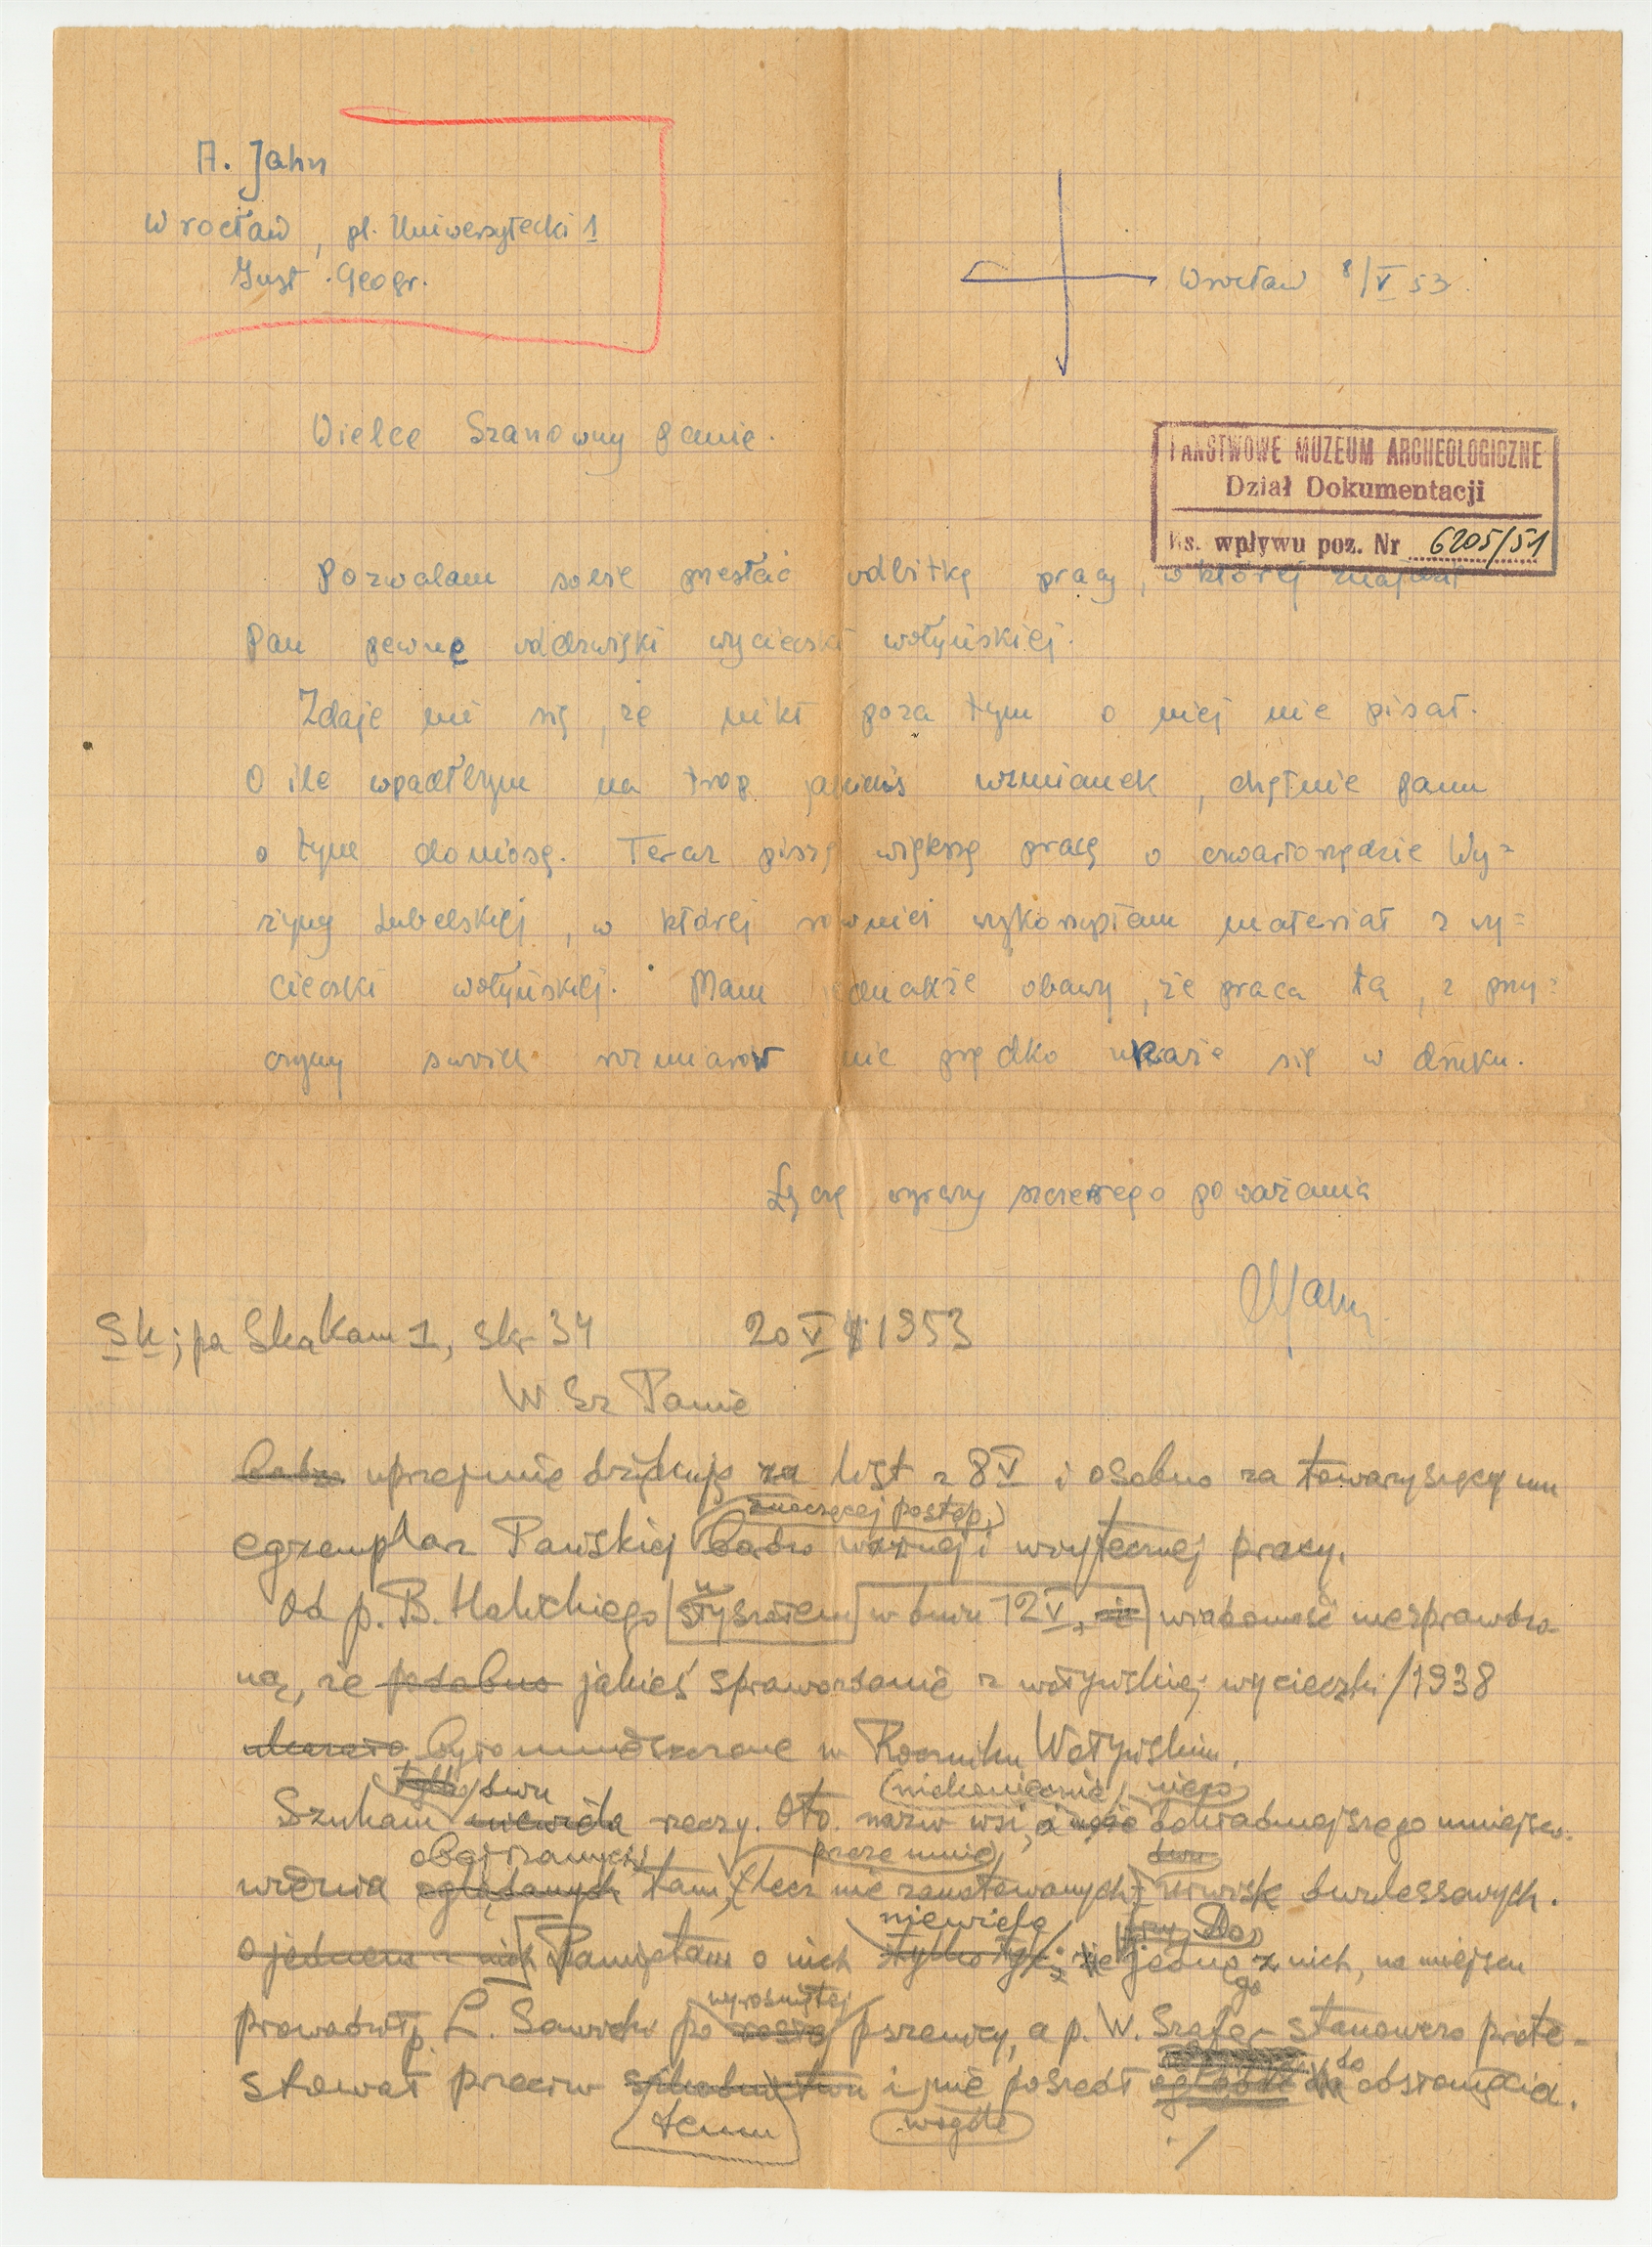 A. Jahn
Wrocław, pl. Uniwersytecki 1
Inst. Geogr.
Wrocław 8/V 53.
Wielce Szanowny Panie.
PAŃSTWOWE MUZEUM ARCHEOLOGICZNE
Dział Dokumentacji
Ks. wpływu poz. Nr 6205/51
Pozwalam sobie przesłać odbitkę pracy, w której znajdzie
Pan pewne oddźwięki wycieczki wołyńskiej.
Zdaje mi się, że nikt poza tym o niej nie pisał.
O ile wpadłbym na trop jakichś wzmianek, chętnie Panu
o tym doniosę. Teraz piszę większą pracę o czwartorzędzie Wy=
żyny Lubelskiej, w której również wykorzystam materiał z wy=
cieczki wołyńskiej. Mam jednakże obawy, że praca ta, z przy=
czyny swoich rozmiarów nie prędko ukaże się w druku.
Łączę wyrazy szczerego poważania
AJahn
Sk; pa Skakam 1, skr 34 20 V 1953
W Sz Panie
uprzejmie dziękuję za list z 8 V i osobno za towarzyszący mu
znaczącej postęp,
egzemplarz Pańskiej bardzo ważnej i użytecznej pracy.
Od p. B. Halickiego słyszałem w dniu 12 V, wiadomość niesprawdzo-
ną, że podobno jakieś sprawozdanie z wołyńskiej wycieczki /1938
było umieszczone w Roczniku Wołyńskim.
tylko dwu (niekoniecznie) niego
Szukam niewiele rzeczy. Oto nazw wsi, dokładniejszego umiejsco-
obejrzanych przeze mnie dwu
wienia oglądanych tam, lecz nie zanotowanych urwisk lessowych.
niewiele
o jednem z nich Pamiętam o nich tylko tyle, że jedno z nich, na miejscu
wyrośniętej go
prowadził p. L. Sawicki po pszenicy, a p. W. Szafer stanowczo prote-
do
stował przeciw szkodnictwu i nie poszedł do odsłonięcia.
temu wogóle
./